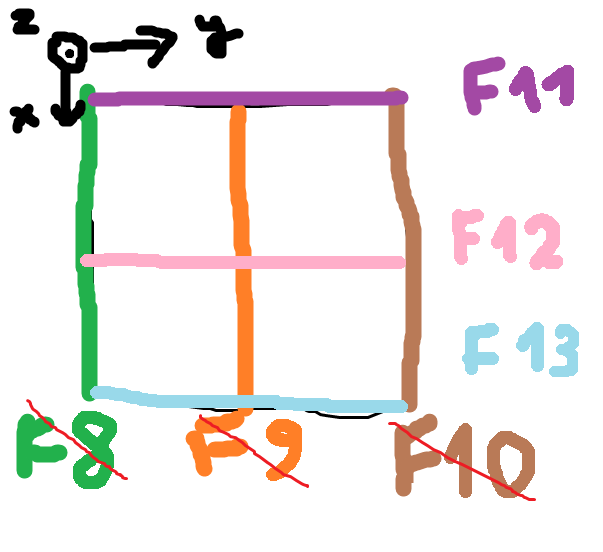 z
y
x
F11
F12
F13
F8 F9 F10